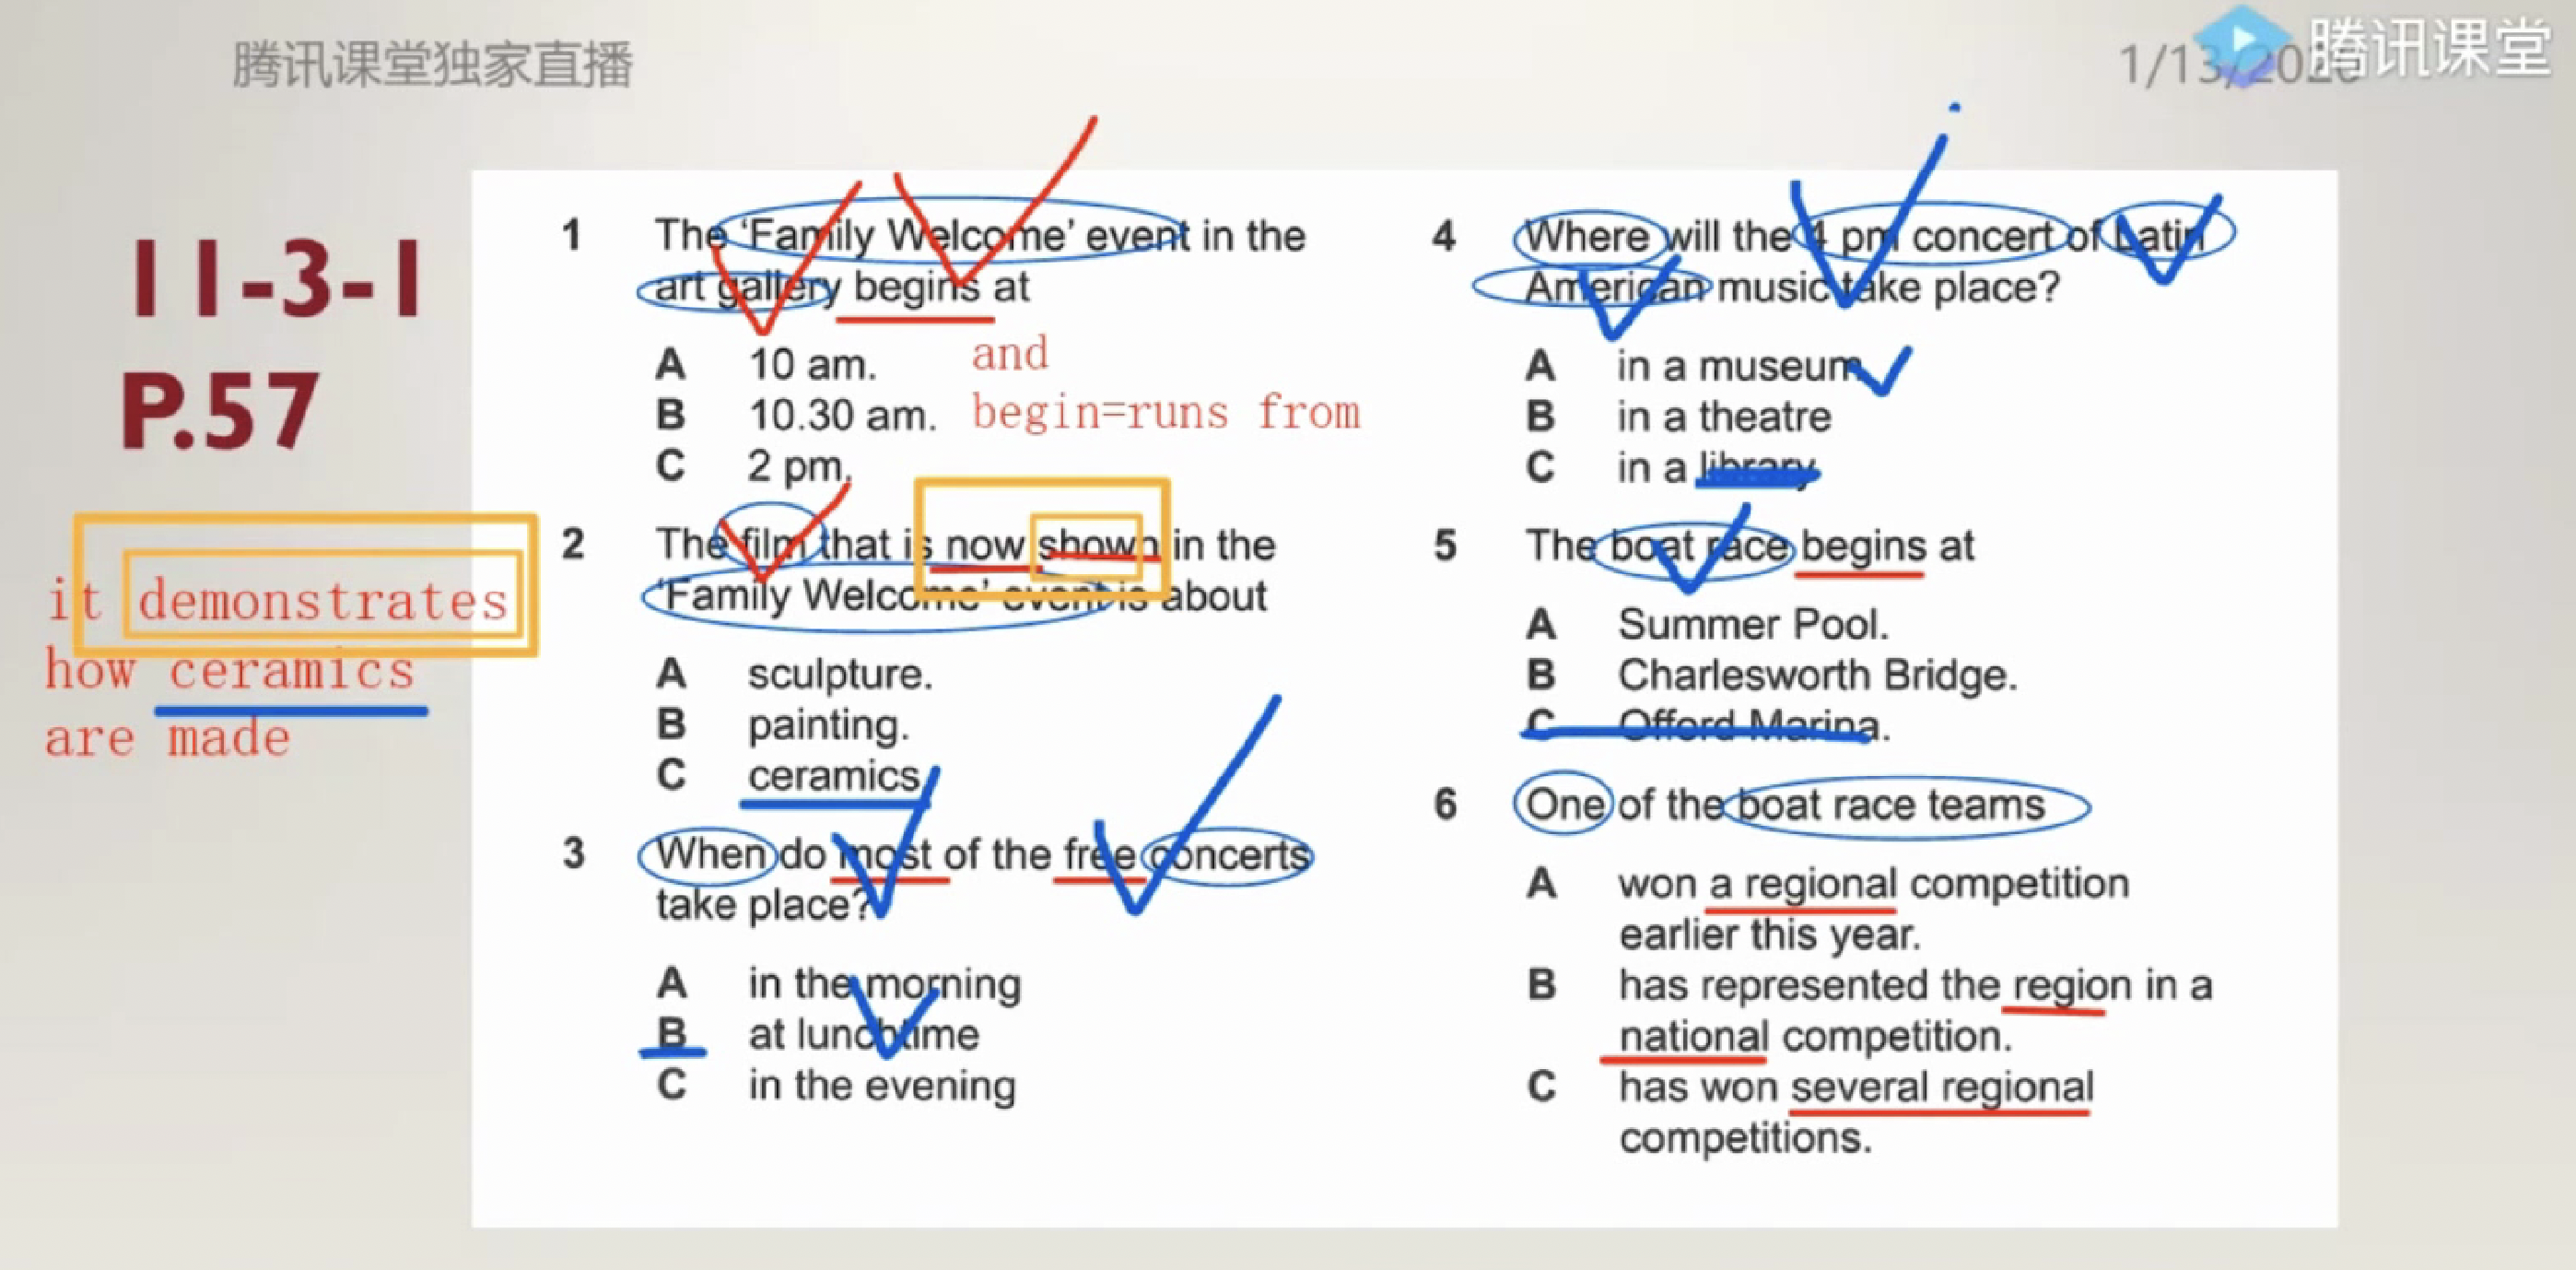 腾讯课堂独家直播
腾讯课堂
11-3-1
P.57
it demonstrates
how ceramics
are made
1 The ‘Family Welcome’ event in the
art gallery begins at
A 10 am.
B 10.30 am.
C 2 pm.
and
begin=runs from
2 The film that is now shown in the
‘Family Welcome’ event is about
A sculpture.
B painting.
C ceramics.
3 When do most of the free concerts
take place?
A in the morning
B at lunchtime
C in the evening
4 Where will the 4 pm concert of Latin
American music take place?
A in a museum
B in a theatre
C in a library
5 The boat race begins at
A Summer Pool.
B Charlesworth Bridge.
C Offord Marina.
6 One of the boat race teams
A won a regional competition
earlier this year.
B has represented the region in a
national competition.
C has won several regional
competitions.